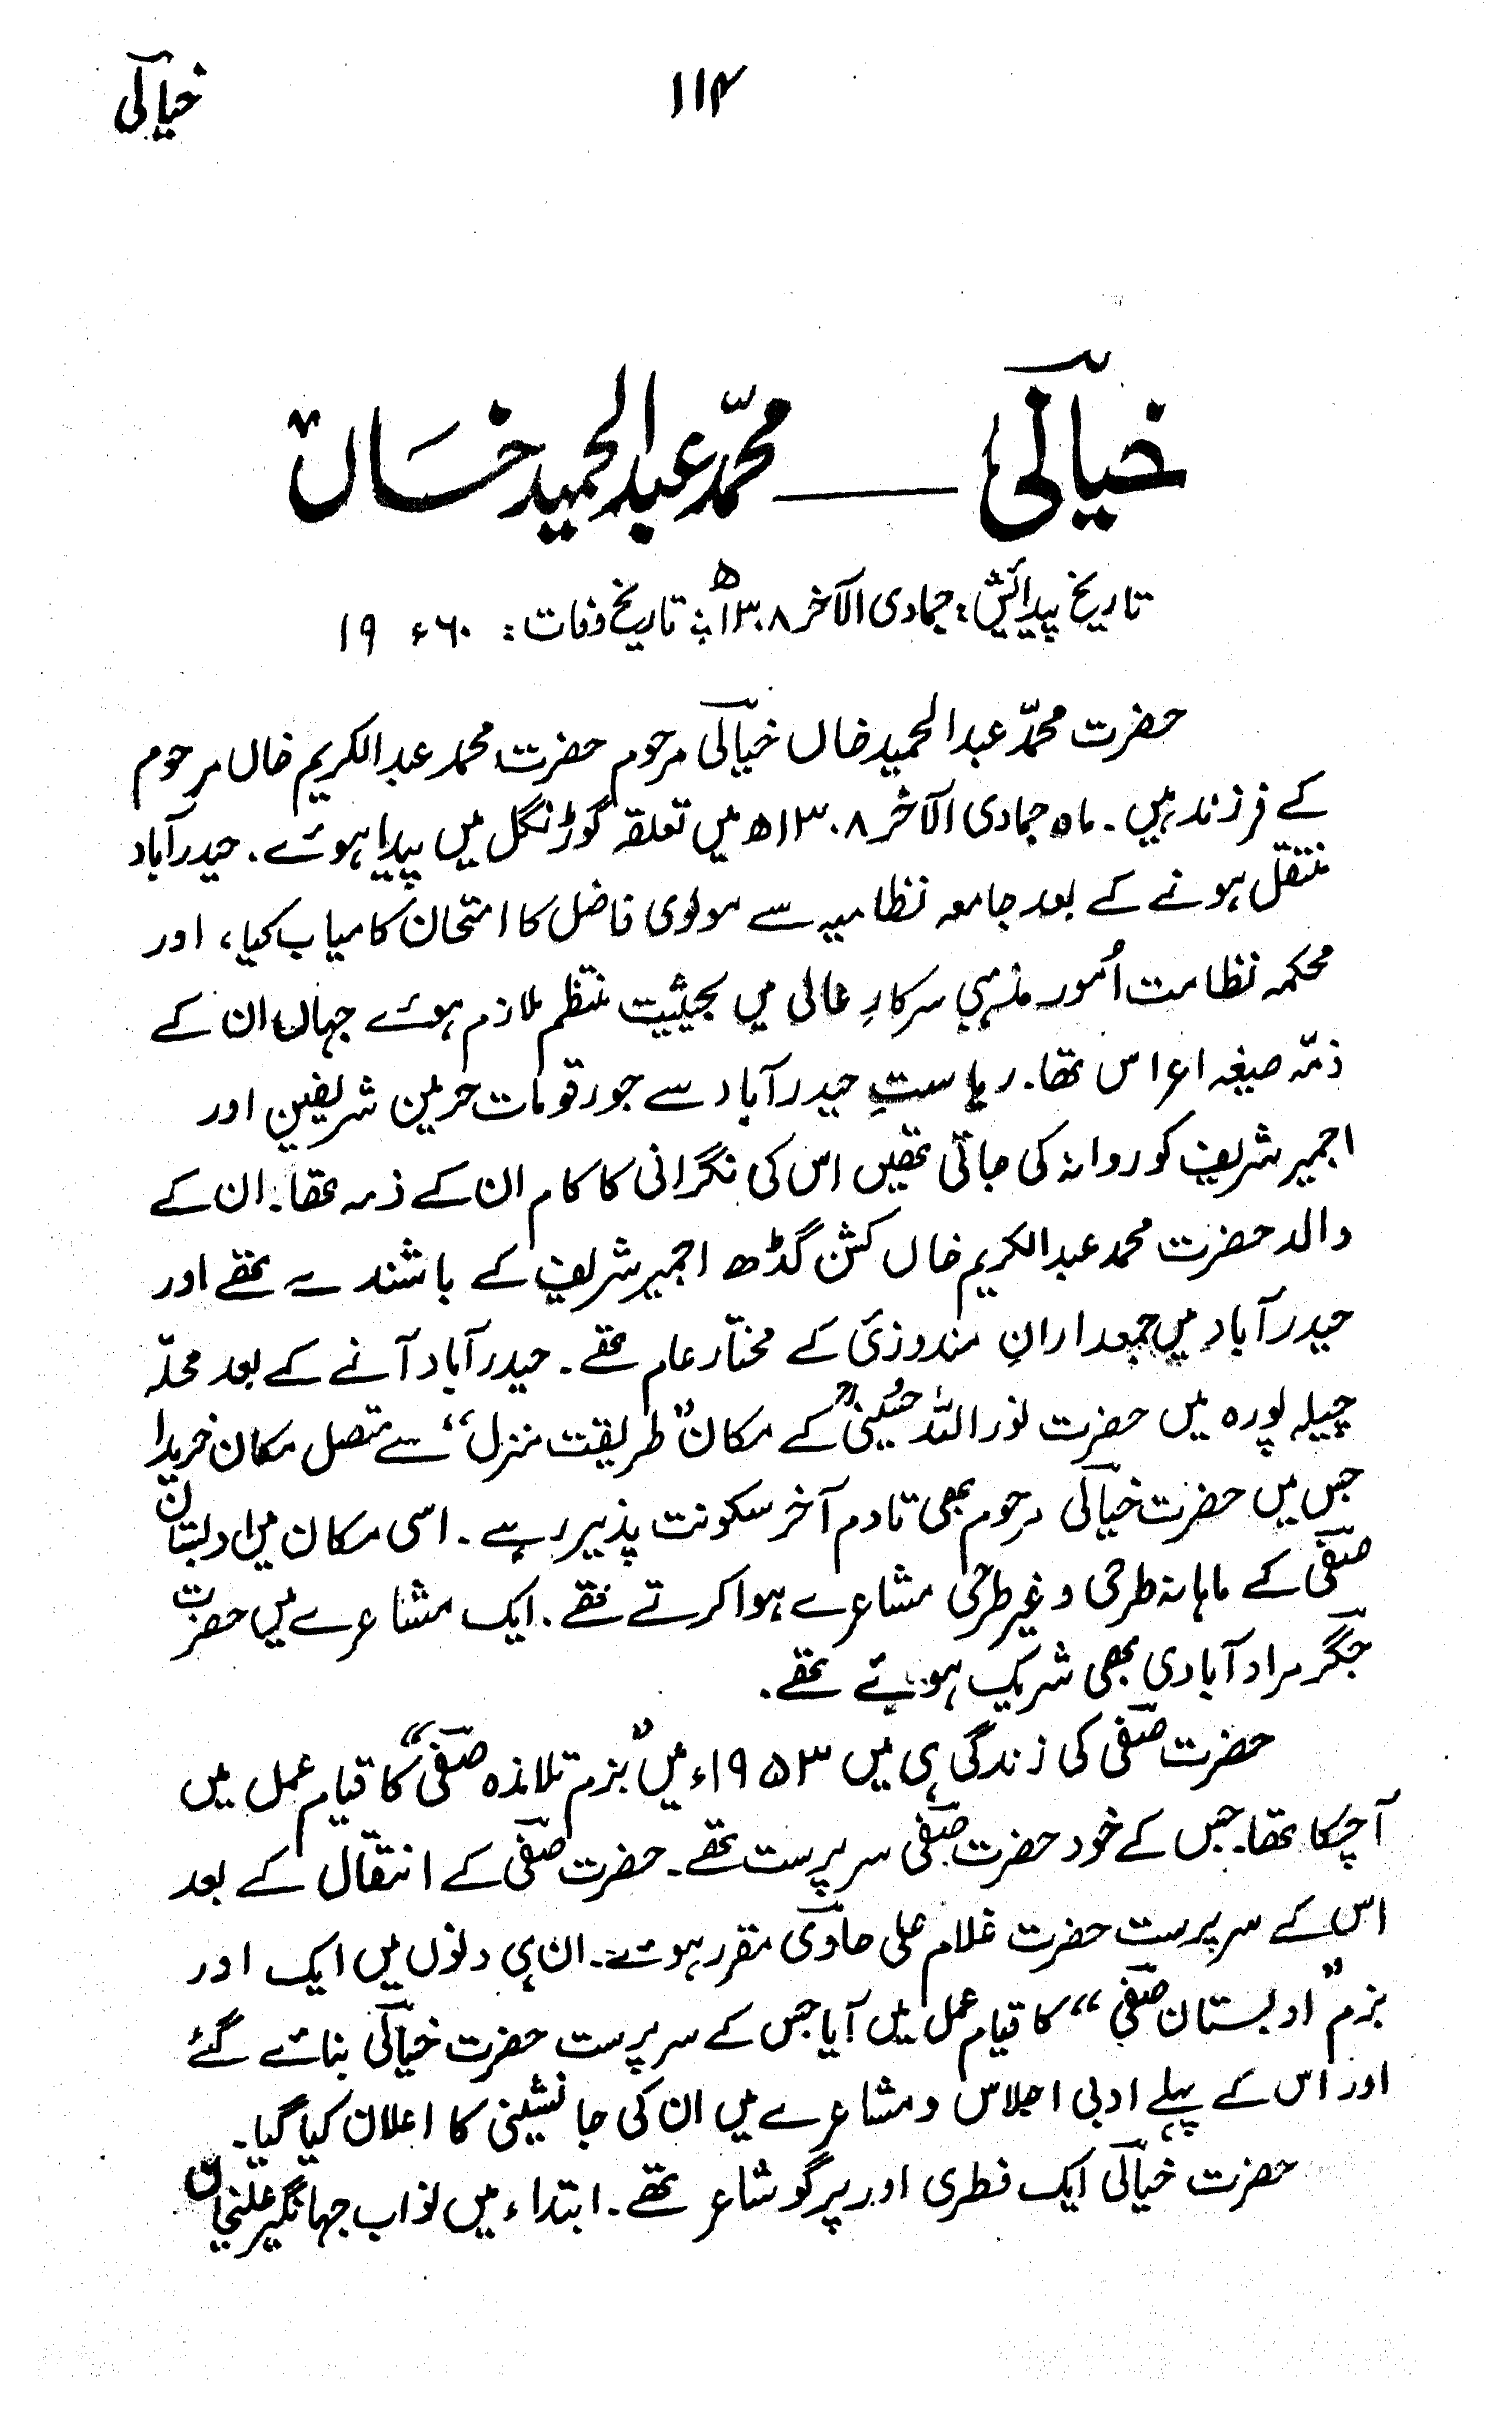 ۱۱۴ خیالؔی
خیالؔی ـــــ محمّد عبدالحمید خاں
تاریخ پیدائش: جمادی الآخر ۱۳۰۸ھ؁ تاریخ وفات: ۱۹۶۰ء
حضرت محمّد عبدالحمید خاں خیالؔی مرحوم حضرت محمد عبدالکریم خاں مرحوم
کے فرزند ہیں۔ ماہ جمادی الآخر ۱۳۰۸ھ میں تعلقہ گوڑنگل میں پیدا ہوئے۔ حیدرآباد
منتقل ہونے کے بعد جامعہ نظامیہ سے مولوی فاضل کا امتحان کامیاب کیا، اور
محکمہ نظامت اُمور مذہبی سرکارِ عالی میں بحیثیت منتظم ملازم ہوئے جہاں ان کے
ذمّہ صیغہ اعراس تھا۔ ریاستِ حیدرآباد سے جو رقومات حرمین شریفین اور
اجمیر شریف کو روانہ کی جاتی تھیں اس کی نگرانی کا کام ان کے ذمہ تھا۔ ان کے
والد حضرت محمد عبدالکریم خاں کشن گڈھ اجمیر شریف کے باشندے تھے اور
حیدرآباد میں جمعدارانِ مندوزئی کے مختار عام تھے۔ حیدرآباد آنے کے بعد محلّہ
چیلہ پورہ میں حضرت نوراللہ حُسینیؒ کے مکان "طریقت منزل" سے متصل مکان خریدا
جس میں حضرت خیالؔی مرحوم بھی تادم آخر سکونت پذیر رہے۔ اسی مکان میں ادبستان
صفؔی کے ماہانہ طرحی و غیر طرحی مشاعرے ہوا کرتے تھے۔ ایک مشاعرے میں حضرت
جگؔر مرادآبادی بھی شریک ہوئے تھے۔
حضرت صفؔی کی زندگی ہی میں ۱۹۵۳ء میں "بزم تلامذہ صفؔی" کا قیام عمل میں
آچکا تھا۔ جس کے خود حضرت صفؔی سرپرست تھے۔ حضرت صفؔی کے انتقال کے بعد
اس کے سرپرست حضرت غلام علی حاوؔی مقرر ہوئے۔ ان ہی دنوں میں ایک اور
بزم "ادبستان صفؔی" کا قیام عمل میں آیا جس کے سرپرست حضرت خیالؔی بنائے گئے
اور اس کے پہلے ادبی اجلاس و مشاعرے میں ان کی جانشینی کا اعلان کیا گیا۔
حضرت خیالؔی ایک فطری اور پرگو شاعر تھے۔ ابتداء میں نواب جہانگیر علیخاں